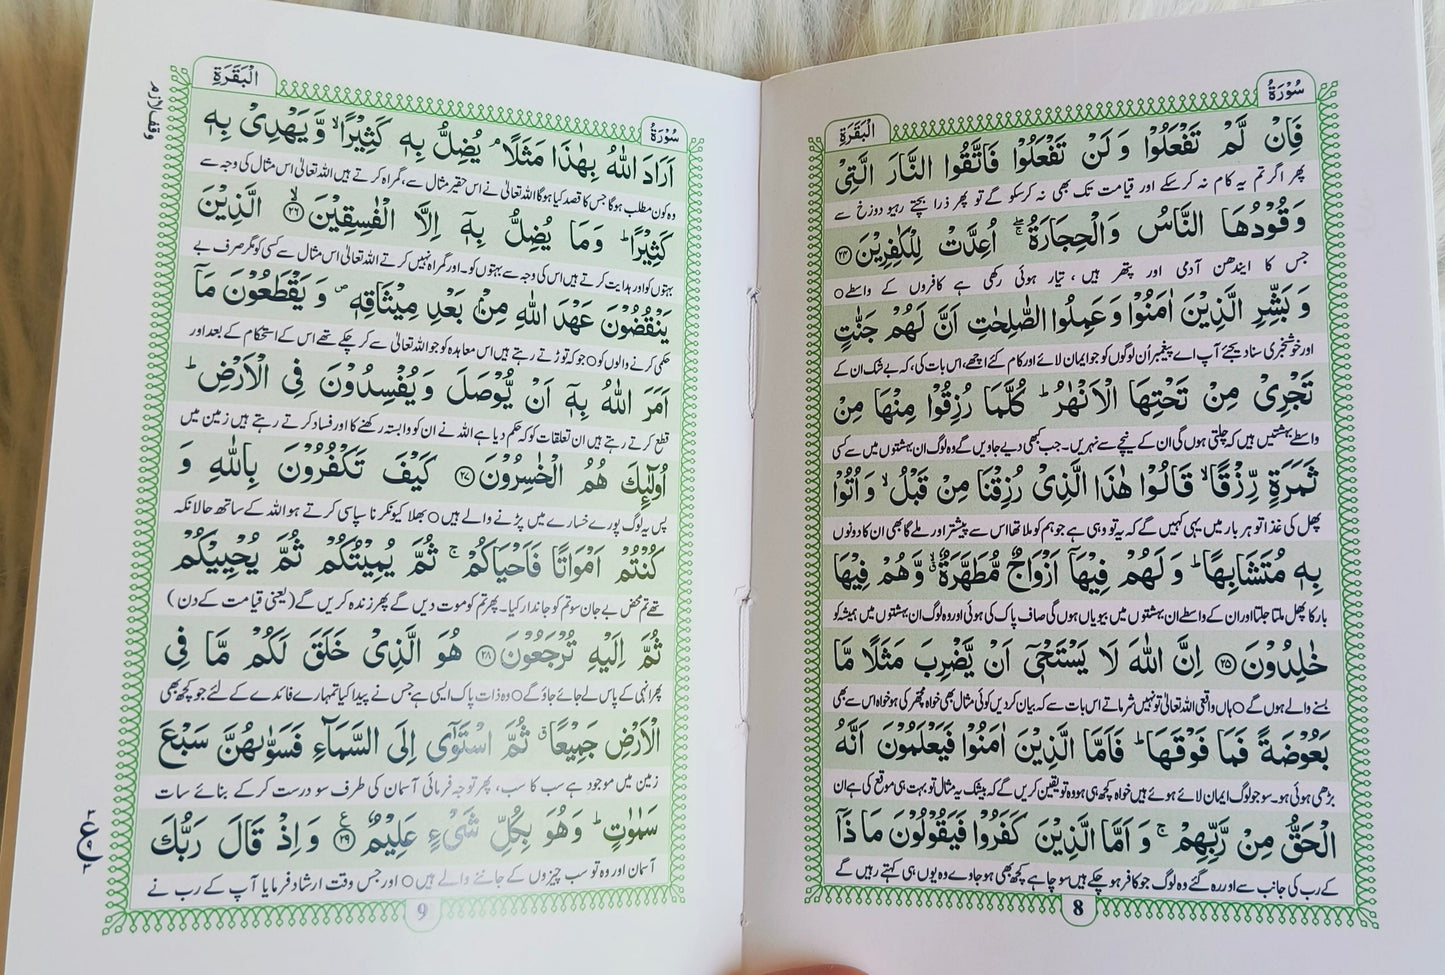 سُوْرَةُ
الْبَقَرَةِ
فَاِنْ لَّمْ تَفْعَلُوْا وَلَنْ تَفْعَلُوْا فَاتَّقُوا النَّارَ الَّتِیْ
پھر اگر تم یہ کام نہ کرسکے اور قیامت تک بھی نہ کرسکو گے تو پھر ذرا بچتے رہیو دوزخ سے
وَقُوْدُهَا النَّاسُ وَالْحِجَارَةُ ۚۖ اُعِدَّتْ لِلْكٰفِرِیْنَ ﴿۲۴﴾
جس کا ایندھن آدمی اور پتھر ہیں، تیار ہوئی رکھی ہے کافروں کے واسطے○
وَ بَشِّرِ الَّذِیْنَ اٰمَنُوْا وَعَمِلُوا الصّٰلِحٰتِ اَنَّ لَهُمْ جَنّٰتٍ
اور خوشخبری سنا دیجئے آپ اے پیغمبر اُن لوگوں کو جو ایمان لائے اور کام کئے اچھے، اس بات کی، کہ بے شک ان کے
تَجْرِیْ مِنْ تَحْتِهَا الْاَنْهٰرُ ؕ كُلَّمَا رُزِقُوْا مِنْهَا مِنْ
واسطے بہشتیں ہیں کہ چلتی ہوں گی ان کے نیچے سے نہریں۔ جب کبھی دیے جاویں گے وہ لوگ ان بہشتوں میں سے کسی
ثَمَرَةٍ رِّزْقًا ۙ قَالُوْا هٰذَا الَّذِیْ رُزِقْنَا مِنْ قَبْلُ ۙ وَاُتُوْا
پھل کی غذا تو ہر بار میں یہی کہیں گے کہ یہ تو وہی ہے جو ہم کو ملا تھا اس سے پیشتر اور ملے گا بھی ان کا دونوں
بِهٖ مُتَشَابِهًا ؕ وَلَهُمْ فِیْهَاۤ اَزْوَاجٌ مُّطَهَّرَةٌ ۙۗ وَّهُمْ فِیْهَا
بار کا پھل ملتا جلتا اور ان کے واسطے ان بہشتوں میں بیویاں ہوں گی صاف پاک کی ہوئی اور وہ لوگ ان بہشتوں میں ہمیشہ کو
خٰلِدُوْنَ ﴿۲۵﴾ اِنَّ اللّٰهَ لَا یَسْتَحْیٖۤ اَنْ یَّضْرِبَ مَثَلًا مَّا
بسنے والے ہوں گے○ہاں واقعی اللہ تعالیٰ تو نہیں شرماتے اس بات سے کہ بیان کردیں کوئی مثال بھی خواہ مچھر کی ہو خواہ اس سے بھی
بَعُوْضَةً فَمَا فَوْقَهَا ؕ فَاَمَّا الَّذِیْنَ اٰمَنُوْا فَیَعْلَمُوْنَ اَنَّهُ
بڑھی ہوئی ہو۔ سو جو لوگ ایمان لائے ہوئے ہیں خواہ کچھ ہی ہو وہ تو یقین کریں گے کہ بیشک یہ مثال تو بہت ہی موقع کی ہے ان
الْحَقُّ مِنْ رَّبِّهِمْ ۚ وَ اَمَّا الَّذِیْنَ كَفَرُوْا فَیَقُوْلُوْنَ مَاذَاۤ
کے رب کی جانب سے اور رہ گئے وہ لوگ جو کافر ہو چکے ہیں سو چاہے کچھ بھی ہو جاوے وہ یوں ہی کہتے رہیں گے
8
الْبَقَرَةِ
سُوْرَةُ
وقف لازم
اَرَادَ اللّٰهُ بِهٰذَا مَثَلًا ۘ یُضِلُّ بِهٖ كَثِیْرًا ۙ وَّیَهْدِیْ بِهٖ
وہ کون مطلب ہوگا جس کا قصد کیا ہوگا اللہ تعالیٰ نے اس حقیر مثال سے، گمراہ کرتے ہیں اللہ تعالیٰ اس مثال کی وجہ سے
كَثِیْرًا ؕ وَمَا یُضِلُّ بِهٖۤ اِلَّا الْفٰسِقِیْنَ ۙ﴿۲۶﴾ الَّذِیْنَ
بہتوں کو اور ہدایت کرتے ہیں اس کی وجہ سے بہتوں کو۔ اور گمراہ نہیں کرتے اللہ تعالیٰ اس مثال سے کسی کو مگر صرف بے
یَنْقُضُوْنَ عَهْدَ اللّٰهِ مِنْۢ بَعْدِ مِیْثَاقِهٖ ۪ وَیَقْطَعُوْنَ مَاۤ
حکمی کرنے والوں کو○جو کہ توڑتے رہتے ہیں اس معاہدہ کو جو اللہ تعالیٰ سے کر چکے تھے اس کے استحکام کے بعد اور
اَمَرَ اللّٰهُ بِهٖۤ اَنْ یُّوْصَلَ وَیُفْسِدُوْنَ فِی الْاَرْضِ ؕ
قطع کرتے رہتے ہیں ان تعلقات کو کہ حکم دیا ہے اللہ نے ان کو وابستہ رکھنے کا اور فساد کرتے رہتے ہیں زمین میں
اُولٰٓئِكَ هُمُ الْخٰسِرُوْنَ ﴿۲۷﴾ كَیْفَ تَكْفُرُوْنَ بِاللّٰهِ وَ
پس یہ لوگ پورے خسارے میں پڑنے والے ہیں○بھلا کیونکر ناسپاسی کرتے ہو اللہ کے ساتھ حالانکہ
كُنْتُمْ اَمْوَاتًا فَاَحْیَاكُمْ ۚ ثُمَّ یُمِیْتُكُمْ ثُمَّ یُحْیِیْكُمْ
تھے تم محض بے جان سو تم کو جاندار کیا۔ پھر تم کو موت دیں گے پھر زندہ کریں گے (یعنی قیامت کے دن)
ثُمَّ اِلَیْهِ تُرْجَعُوْنَ ﴿۲۸﴾ هُوَ الَّذِیْ خَلَقَ لَكُمْ مَّا فِی
پھر انہی کے پاس لے جائے جاؤ گے○وہ ذات پاک ایسی ہے جس نے پیدا کیا تمہارے فائدے کے لئے جو کچھ بھی
الْاَرْضِ جَمِیْعًا ۗ ثُمَّ اسْتَوٰۤی اِلَی السَّمَآءِ فَسَوّٰىهُنَّ سَبْعَ
زمین میں موجود ہے سب کا سب، پھر توجہ فرمائی آسمان کی طرف سو درست کرکے بنائے سات
سَمٰوٰتٍ ؕ وَهُوَ بِكُلِّ شَیْءٍ عَلِیْمٌ ﴿۲۹﴾ وَاِذْ قَالَ رَبُّكَ
آسمان اور وہ تو سب چیزوں کے جاننے والے ہیں○اور جس وقت ارشاد فرمایا آپ کے رب نے
ع
9